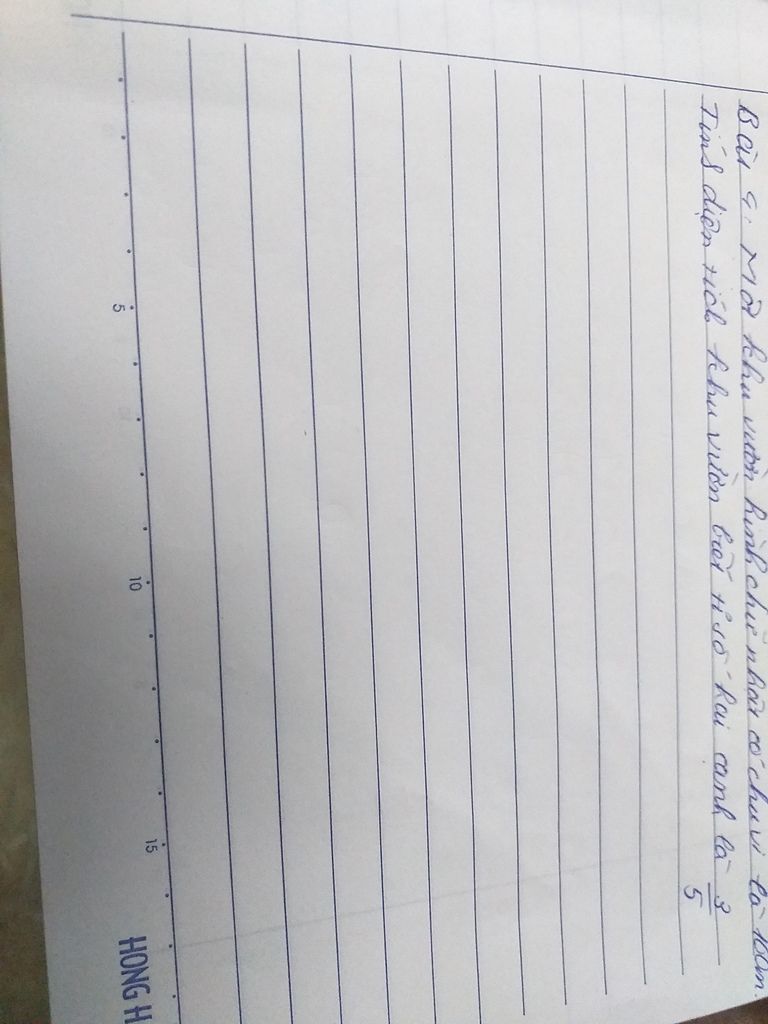 Bài 4. Một khu vườn hình chữ nhật có chu vi là 160m.
Tính diện tích khu vườn biết tỉ số hai cạnh là 3/5
5
10
15
HONG H